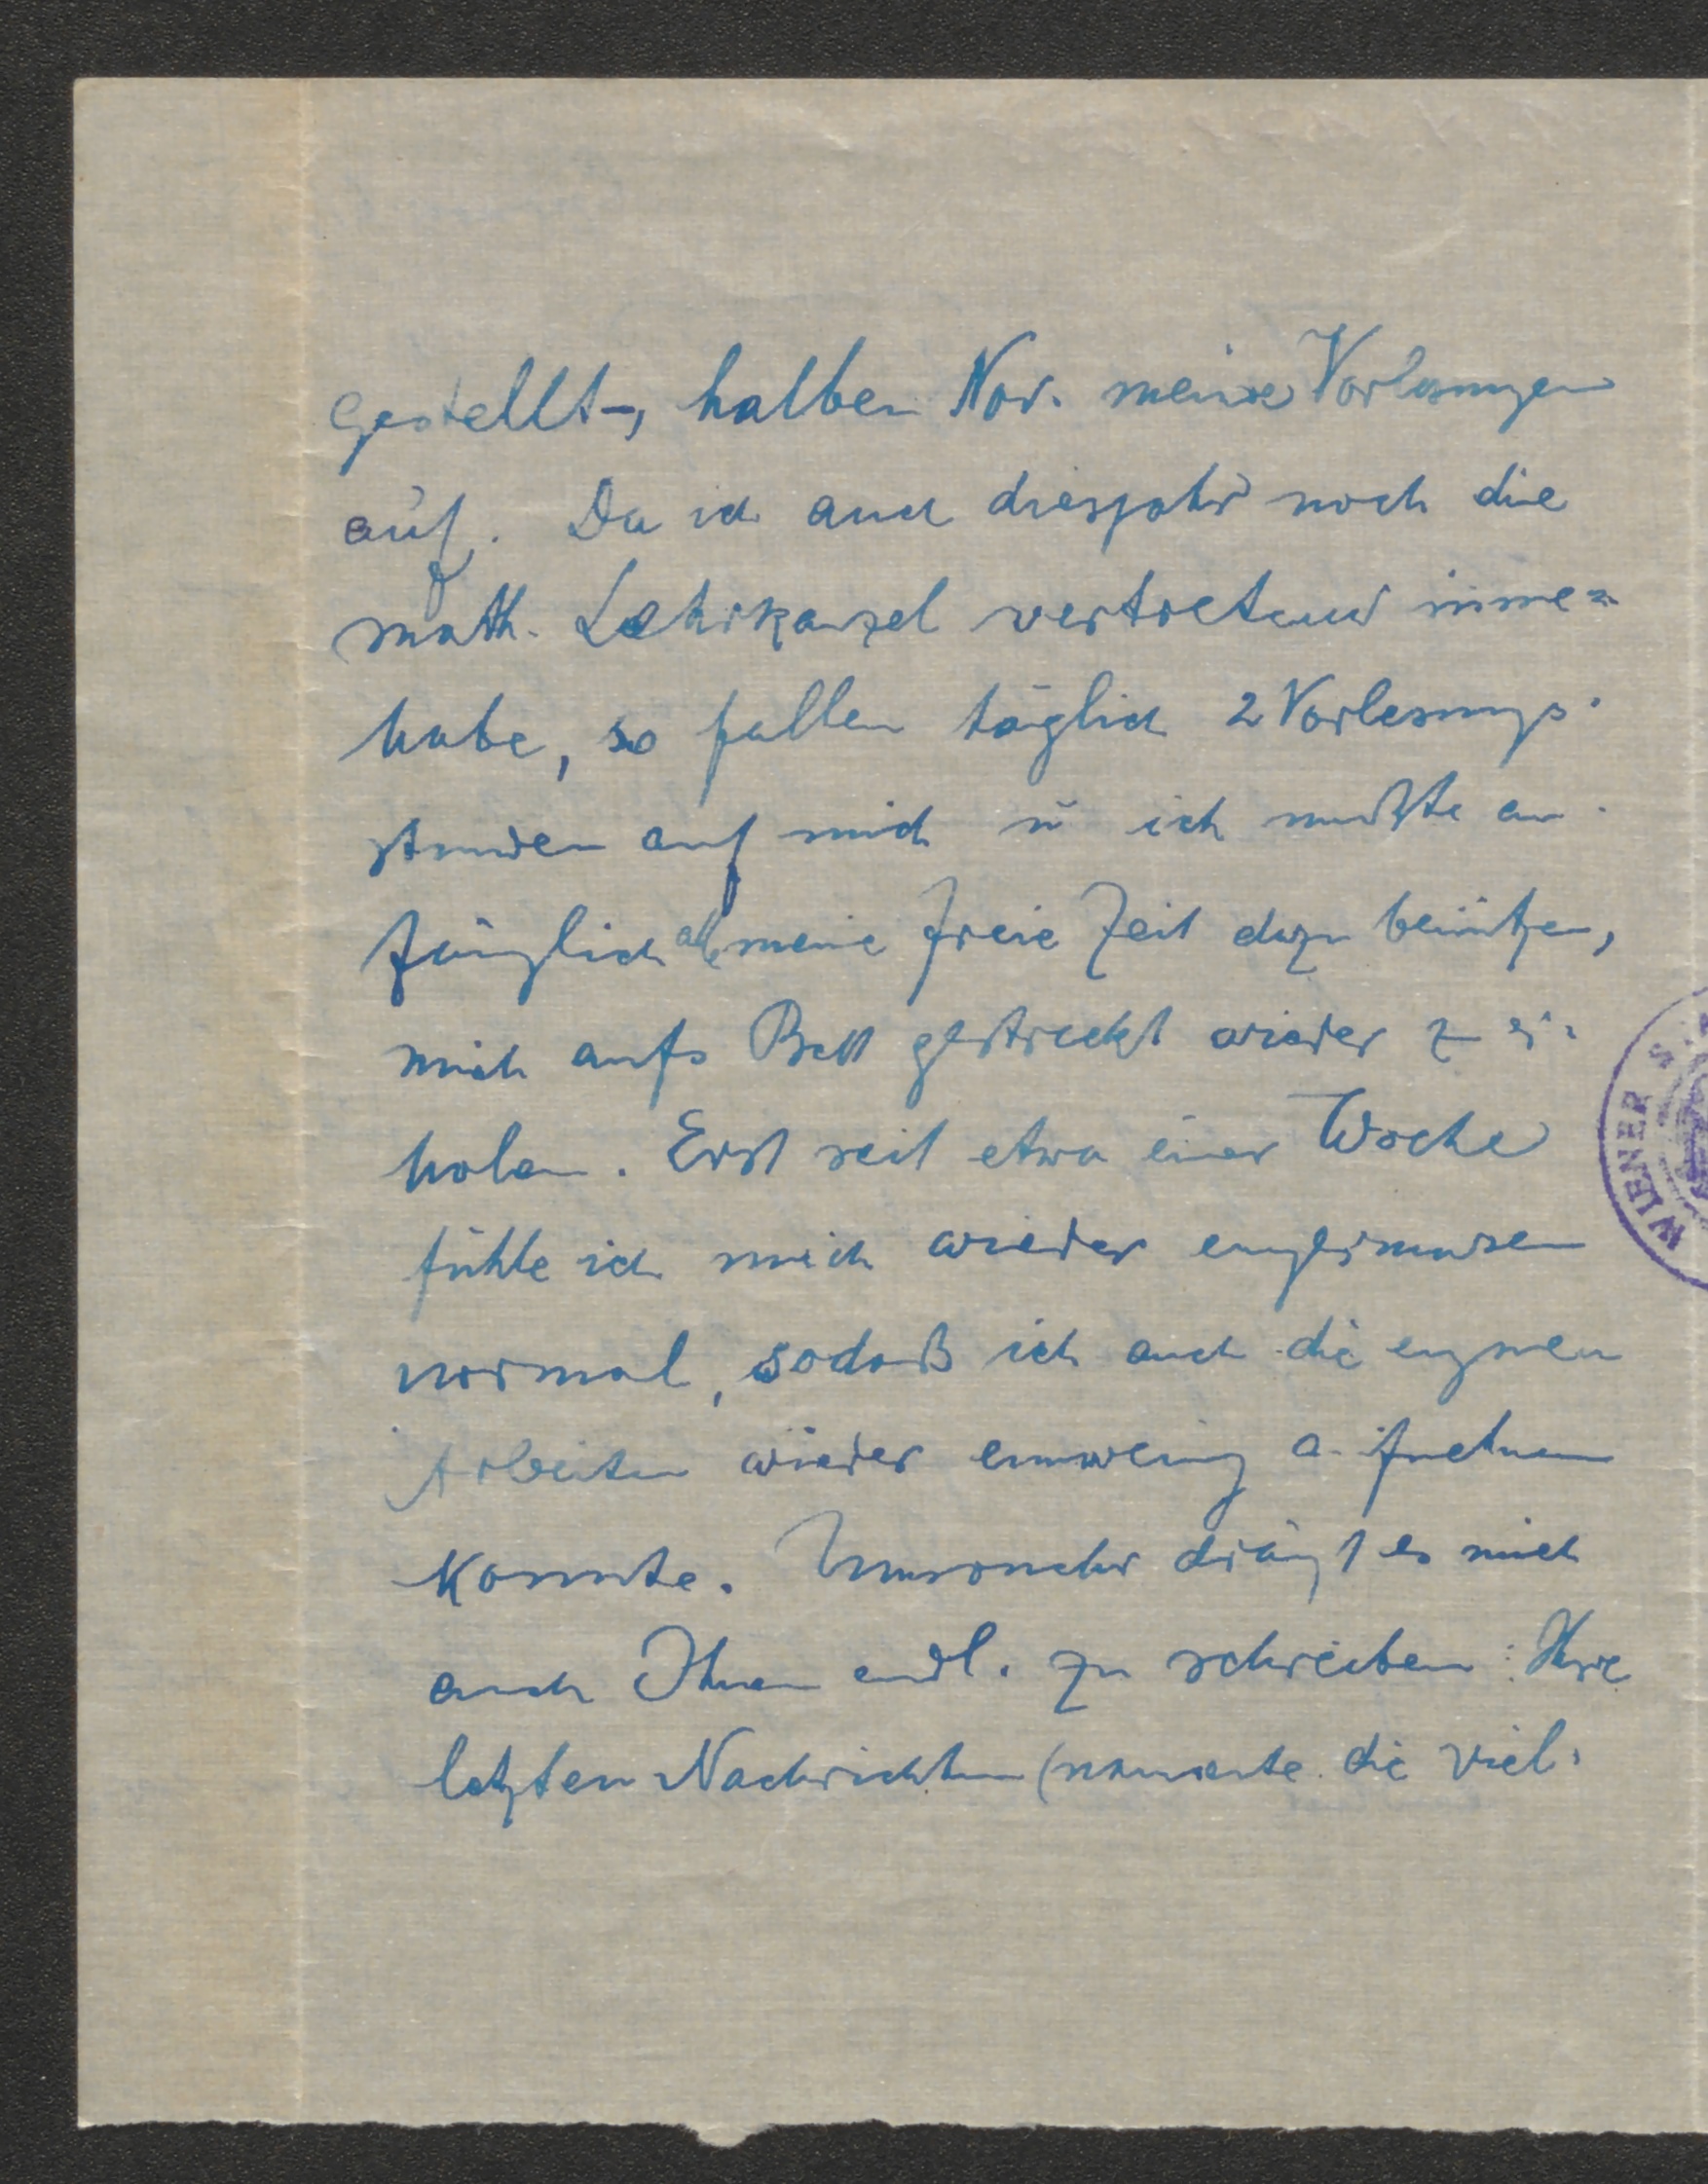 gestellt –, halben Nov. meine Vorlesungen
auf. Da ich auch diesjahr noch die
math. Lehrkanzel vertretend inne=
habe, so fallen täglich 2 Vorlesungs-
stunden auf mich u ich mußte an-
fänglich alle meine freie Zeit dazu benützen,
mich aufs Bett gestreckt wieder zu er-
holen. Erst seit etwa einer Woche
fühle ich mich wieder einigermassen
normal, sodaß ich auch die eigenen
Arbeiten wieder einwenig aufnehmen
konnte. Umsomehr drängt es mich
auch Ihnen endl. zu schreiben: Ihre
letzten Nachrichten (namentl. die viel-
WIENER S